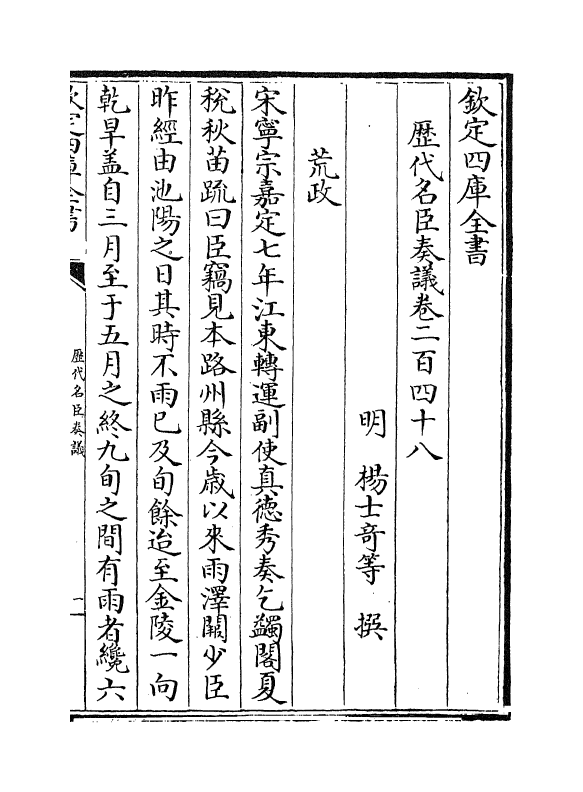 欽定四庫全書
歴代名臣奏議卷二百四十八
明 楊士竒等 撰
荒政
宋寧宗嘉定七年江東轉運副使真徳秀奏乞蠲閣夏
稅秋苗疏曰臣竊見本路州縣今歳以來雨澤闕少臣
昨經由池陽之日其時不雨巳及旬餘迨至金陵一向
乾旱盖自三月至于五月之終九旬之間有雨者纔六
欽定四庫全書
歴代名臣奏議